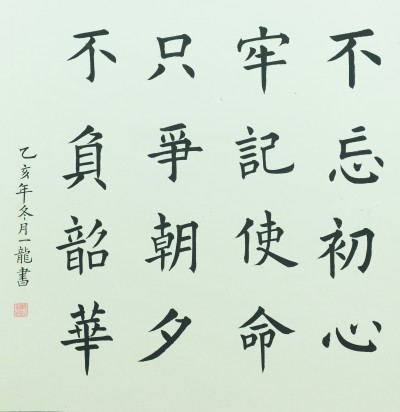 不忘初心
牢記使命
只爭朝夕
不負韶華
乙亥年冬月一龍書